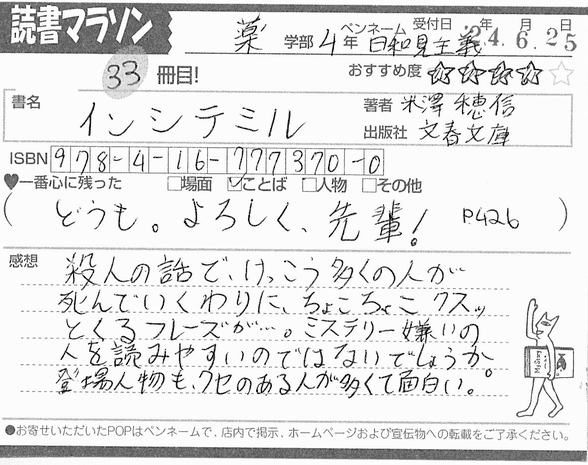 読書マラソン
薬 学部 4年 ペンネーム 日和見主義 受付日 '24年 6月 25日
33 冊目! おすすめ度 ☆☆☆☆☆
書名 インシテミル
著者 米澤 穂信
出版社 文春文庫
ISBN 978-4-16-777370-0
♥一番心に残った □場面 ☑ことば □人物 □その他
( どうも。よろしく、先輩! P.426 )
感想 殺人の話で、けっこう多くの人が
死んでいくわりに、ちょこちょこクスッ
とくるフレーズが…。ミステリー嫌いの
人を読みやすいのではないでしょうか。
登場人物も、クセのある人が多くて面白い。
Mystery
●お寄せいただいたPOPはペンネームで、店内で掲示、ホームページおよび宣伝物への転載をご了承ください。